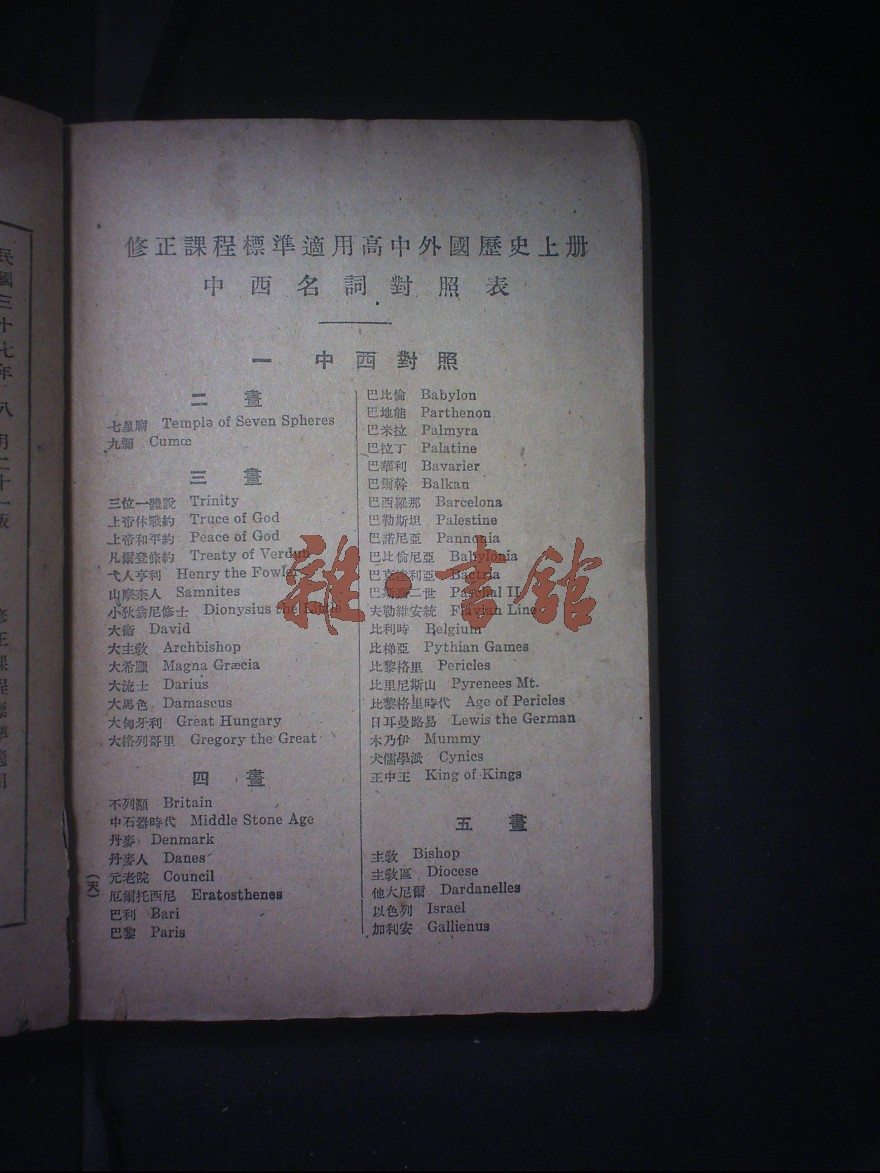 修正課程標準適用高中外國歷史上册
中西名詞對照表
一 中西對照
二 畫
七星廟 Temple of Seven Spheres
九彌 Cumœ
三 畫
三位一體說 Trinity
上帝休戰約 Truce of God
上帝和平約 Peace of God
凡爾登條約 Treaty of Verdun
弋人亨利 Henry the Fowler
山摩奈人 Samnites
小狄翁尼修士 Dionysius the Little
大衞 David
大主敎 Archbishop
大希臘 Magna Græcia
大流士 Darius
大馬色 Damascus
大匈牙利 Great Hungary
大格列哥里 Gregory the Great
四 畫
不列顚 Britain
中石器時代 Middle Stone Age
丹麥 Denmark
丹麥人 Danes
元老院 Council
厄爾托西尼 Eratosthenes
巴利 Bari
巴黎 Paris
巴比倫 Babylon
巴地能 Parthenon
巴米拉 Palmyra
巴拉丁 Palatine
巴華利 Bavarier
巴爾幹 Balkan
巴西羅那 Barcelona
巴勒斯坦 Palestine
巴諾尼亞 Pannonia
巴比倫尼亞 Babylonia
巴克達利亞 Bactria
巴斯嘉二世 Paschal II
夫勒維安統 Flavian Line
比利時 Belgium
比梯亞 Pythian Games
比黎格里 Pericles
比里尼斯山 Pyrenees Mt.
比黎格里時代 Age of Pericles
日耳曼路易 Lewis the German
木乃伊 Mummy
犬儒學派 Cynics
王中王 King of Kings
五 畫
主敎 Bishop
主敎區 Diocese
他大尼爾 Dardanelles
以色列 Israel
加利安 Gallienus
(六)
民國三十七年八月二十一版
修正課程標準適用
雜·書館